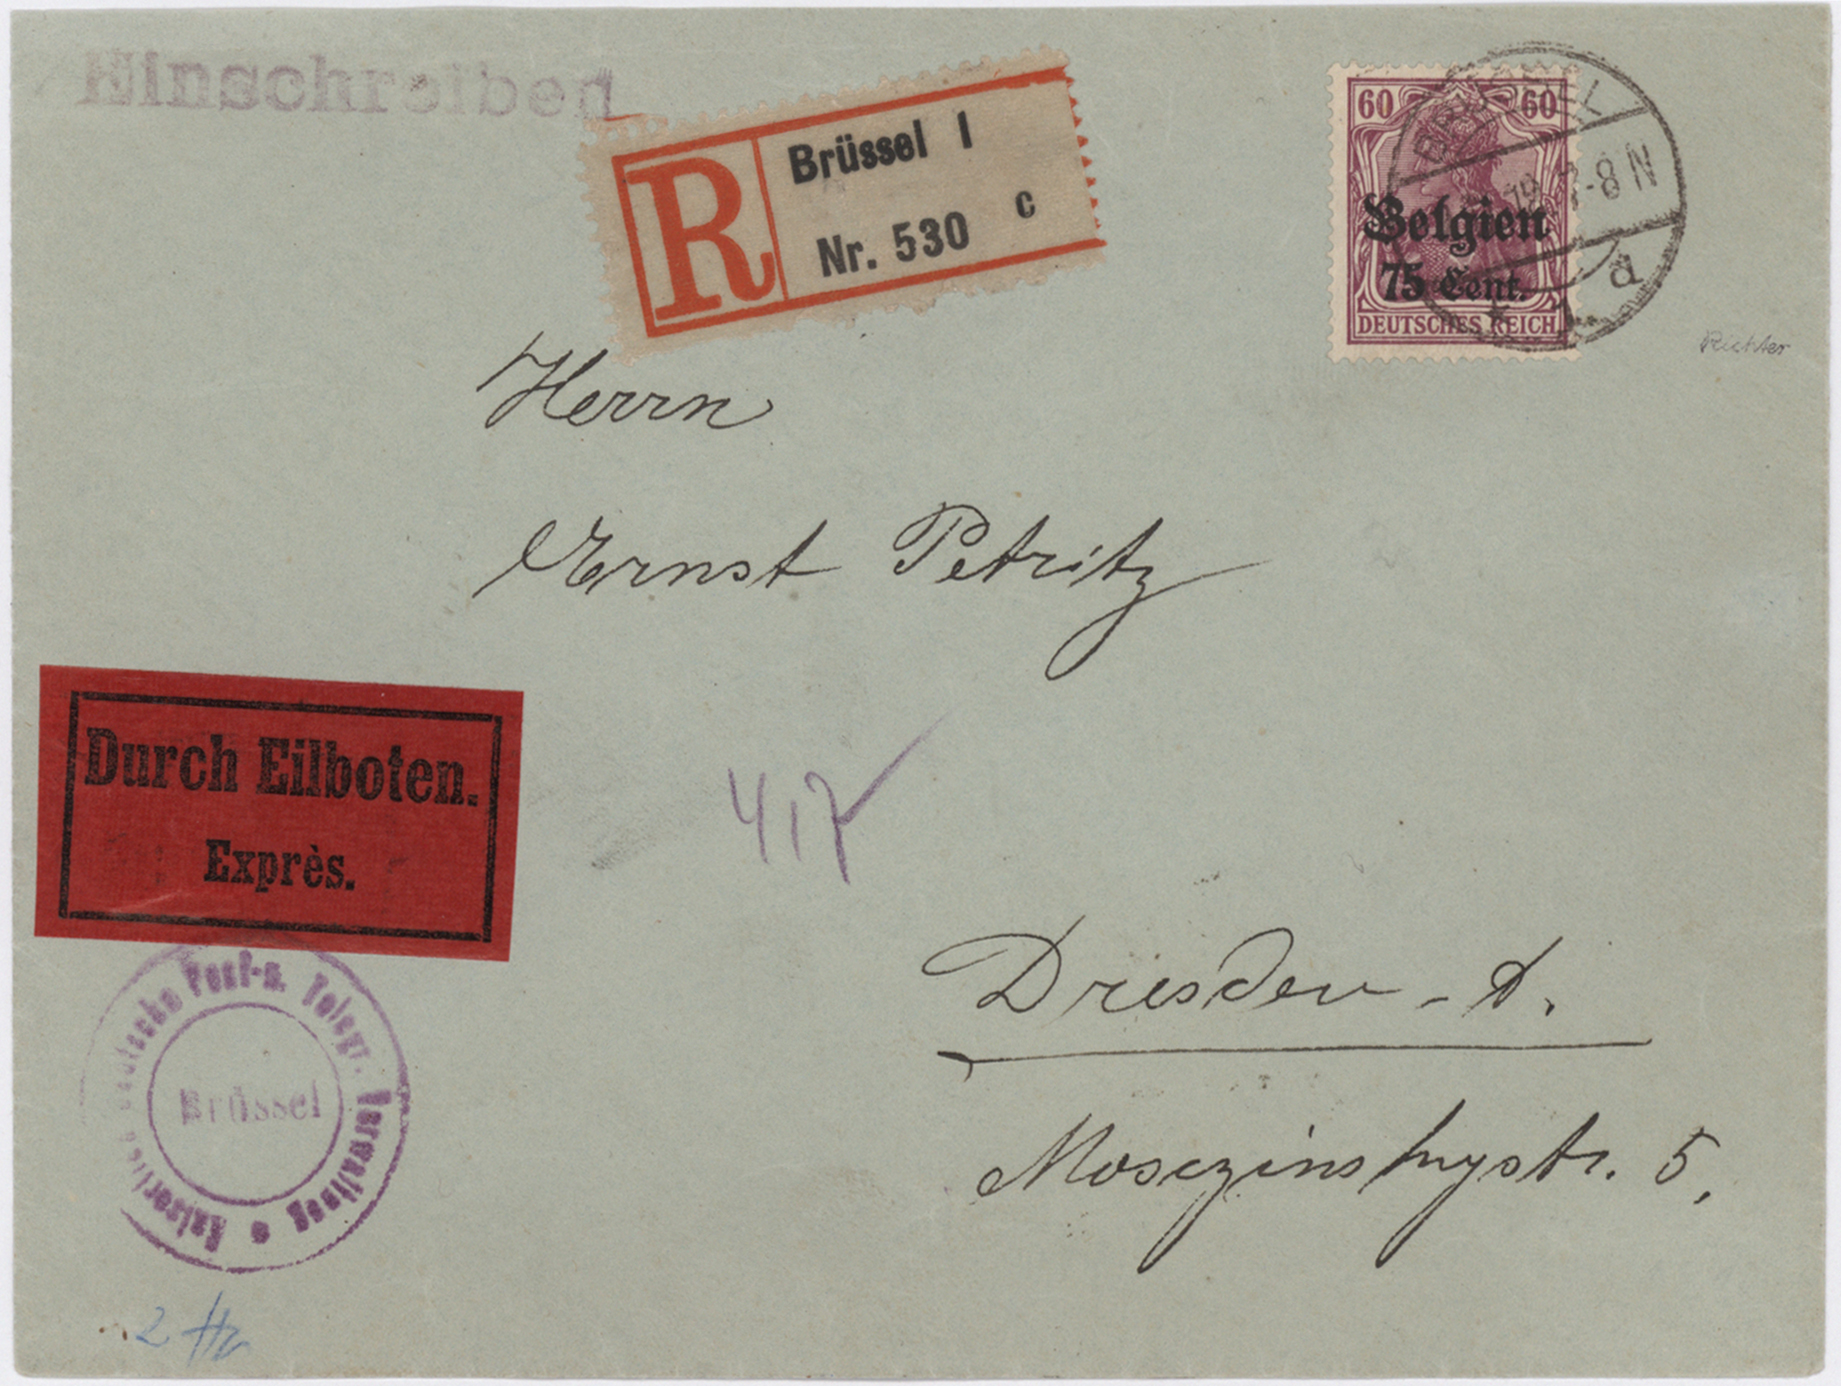 Einschreiben
R
Brüssel 1
Nr. 530 c
60 60
Belgien
75 Cent.
DEUTSCHES REICH
BRÜSSEL
7-8 N
d
Richter
Herrn
Ernst Petritz
Durch Eilboten.
Exprès.
417
Dresden - A.
Kaiserlich Deutsche Post- u. Telegr. Verwaltung
Brüssel
Mosczinskystr. 5.
2